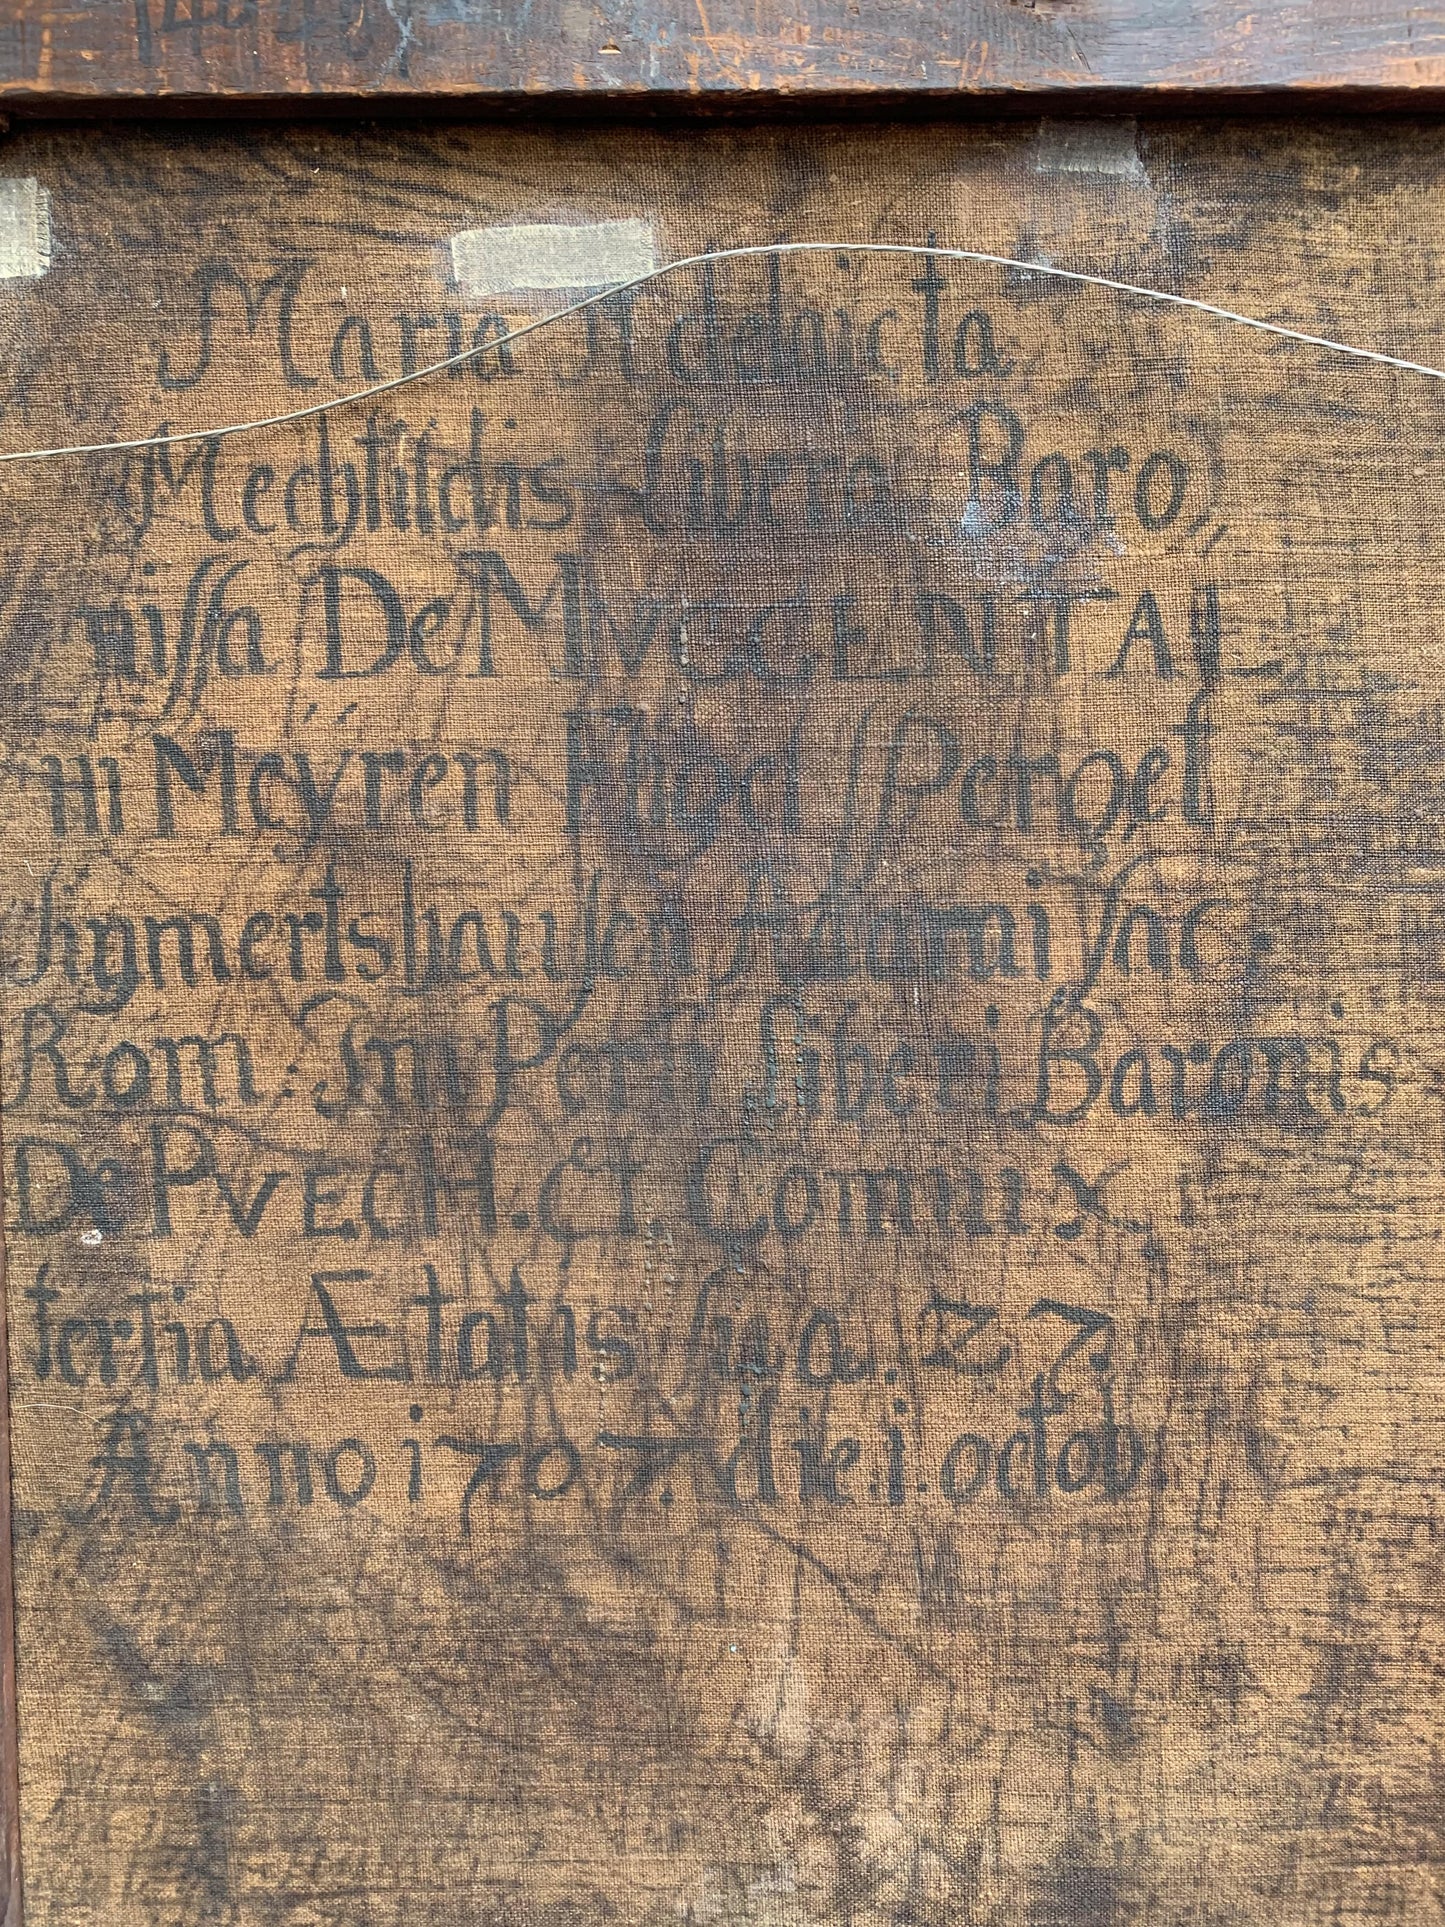 Maria Adelaicta
Mechtildis Libria Baro„
nissa De MVGGENTAL
in Meÿren Niod Sperget
Sigmertshausen Adm
Rom: Im Perii liberi Baronis
De PVECH. et Comiux
tertia Ætatis suæ. 27.
Anno 1707. die.1.octob.